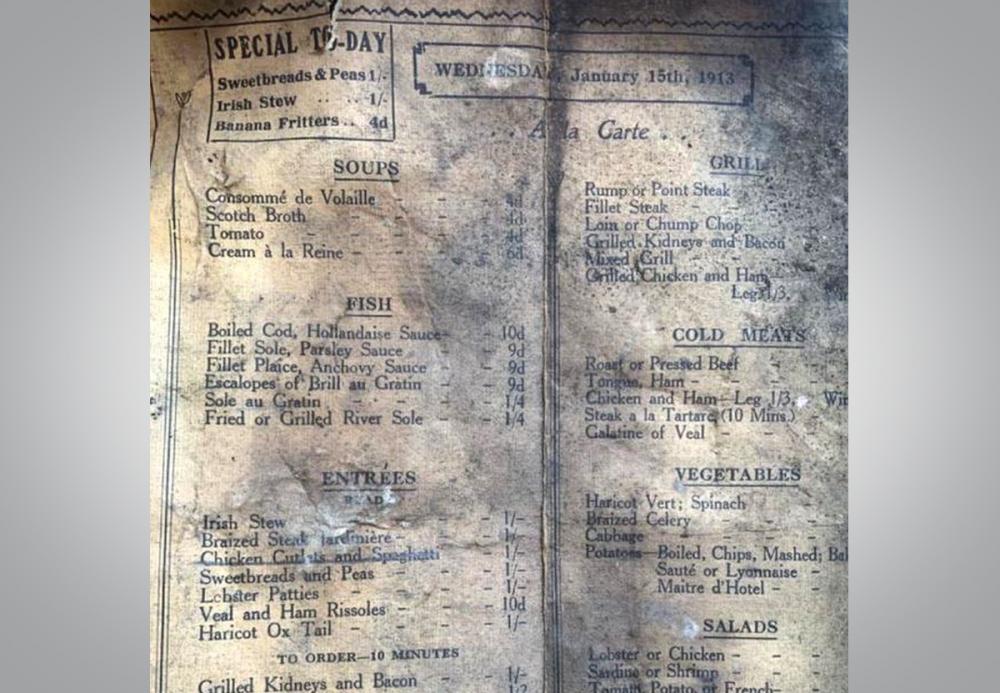 SPECIAL TO-DAY
Sweetbreads & Peas 1/-
Irish Stew .. .. 1/-
Banana Fritters .. 4d
WEDNESDAY, January 15th, 1913
. . A la Carte . .
SOUPS
Consommé de Volaille - - - 4d
Scotch Broth - - - - 4d
Tomato - - - - - 4d
Cream à la Reine - - - - 6d
FISH
Boiled Cod, Hollandaise Sauce - - 10d
Fillet Sole, Parsley Sauce - - 9d
Fillet Plaice, Anchovy Sauce - - 9d
Escalopes of Brill au Gratin - - 9d
Sole au Gratin - - - - 1/4
Fried or Grilled River Sole - - 1/4
ENTRÉES
READY
Irish Stew - - - - 1/-
Braized Steak Jardinière - - - 1/-
Chicken Cutlets and Spaghetti - 1/-
Sweetbreads and Peas - - - 1/-
Lobster Patties - - - - 1/-
Veal and Ham Rissoles - - - 10d
Haricot Ox Tail - - - - 1/-
TO ORDER—10 MINUTES
Grilled Kidneys and Bacon - - 1/-
GRILL
Rump or Point Steak - -
Fillet Steak - - -
Loin or Chump Chop - -
Grilled Kidneys and Bacon -
Mixed Grill - - -
Grilled Chicken and Ham—
Leg 1/3,
COLD MEATS
Roast or Pressed Beef - -
Tongue, Ham - - - -
Chicken and Ham—Leg 1/3,
Steak a la Tartare (10 Mins.) -
Galatine of Veal - - -
VEGETABLES
Haricot Vert; Spinach
Braized Celery - - -
Cabbage - - - -
Potatoes—Boiled, Chips, Mashed;
Sauté or Lyonnaise -
Maitre d'Hotel - -
SALADS
Lobster or Chicken - - -
Sardine or Shrimp - - -
Tomato, Potato, or French-